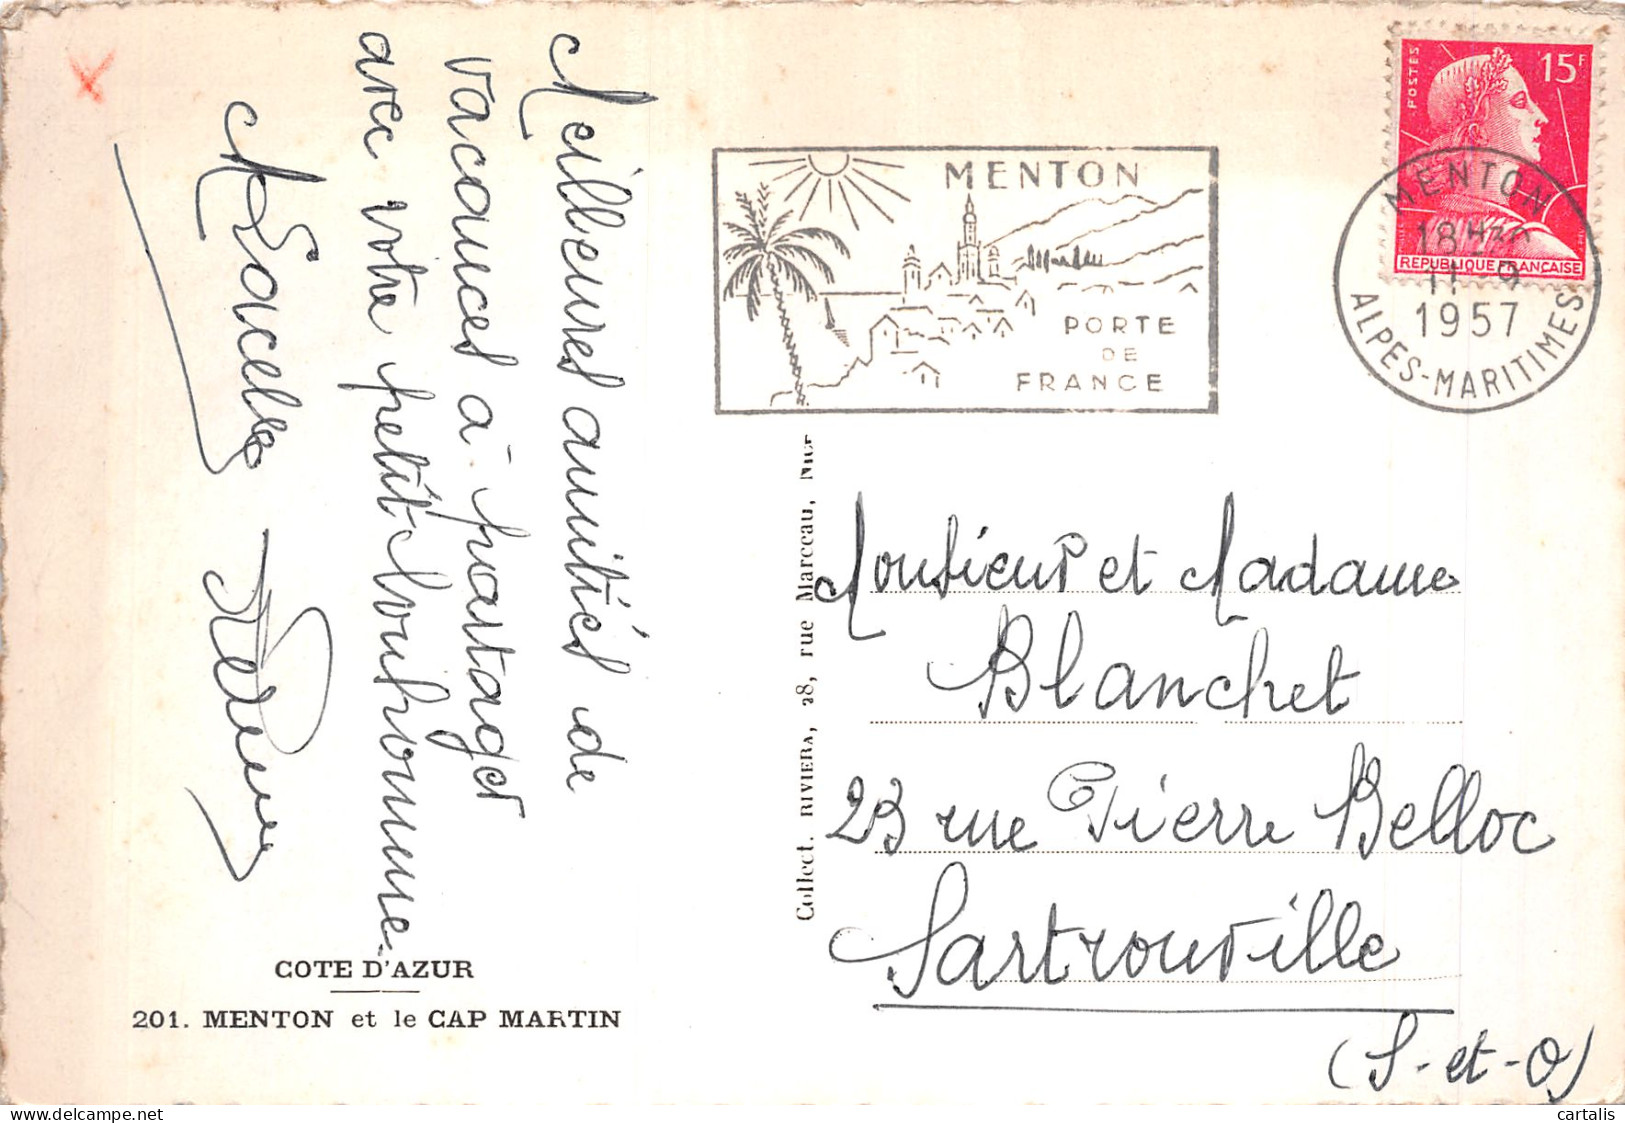 Meilleures amitiés de
vacances à partager
avec votre petit bonhomme.
Marcelle
COTE D'AZUR
201. MENTON et le CAP MARTIN
Collect. RIVIERA, 28, rue Marceau, Nice
MENTON
PORTE
DE
FRANCE
POSTES
15F
REPUBLIQUE FRANÇAISE
MENTON
18H30
1957
ALPES-MARITIMES
Monsieur et Madame
Blanchet
23 rue Pierre Belloc
Sartrouville
(S-et-O)
cartalis